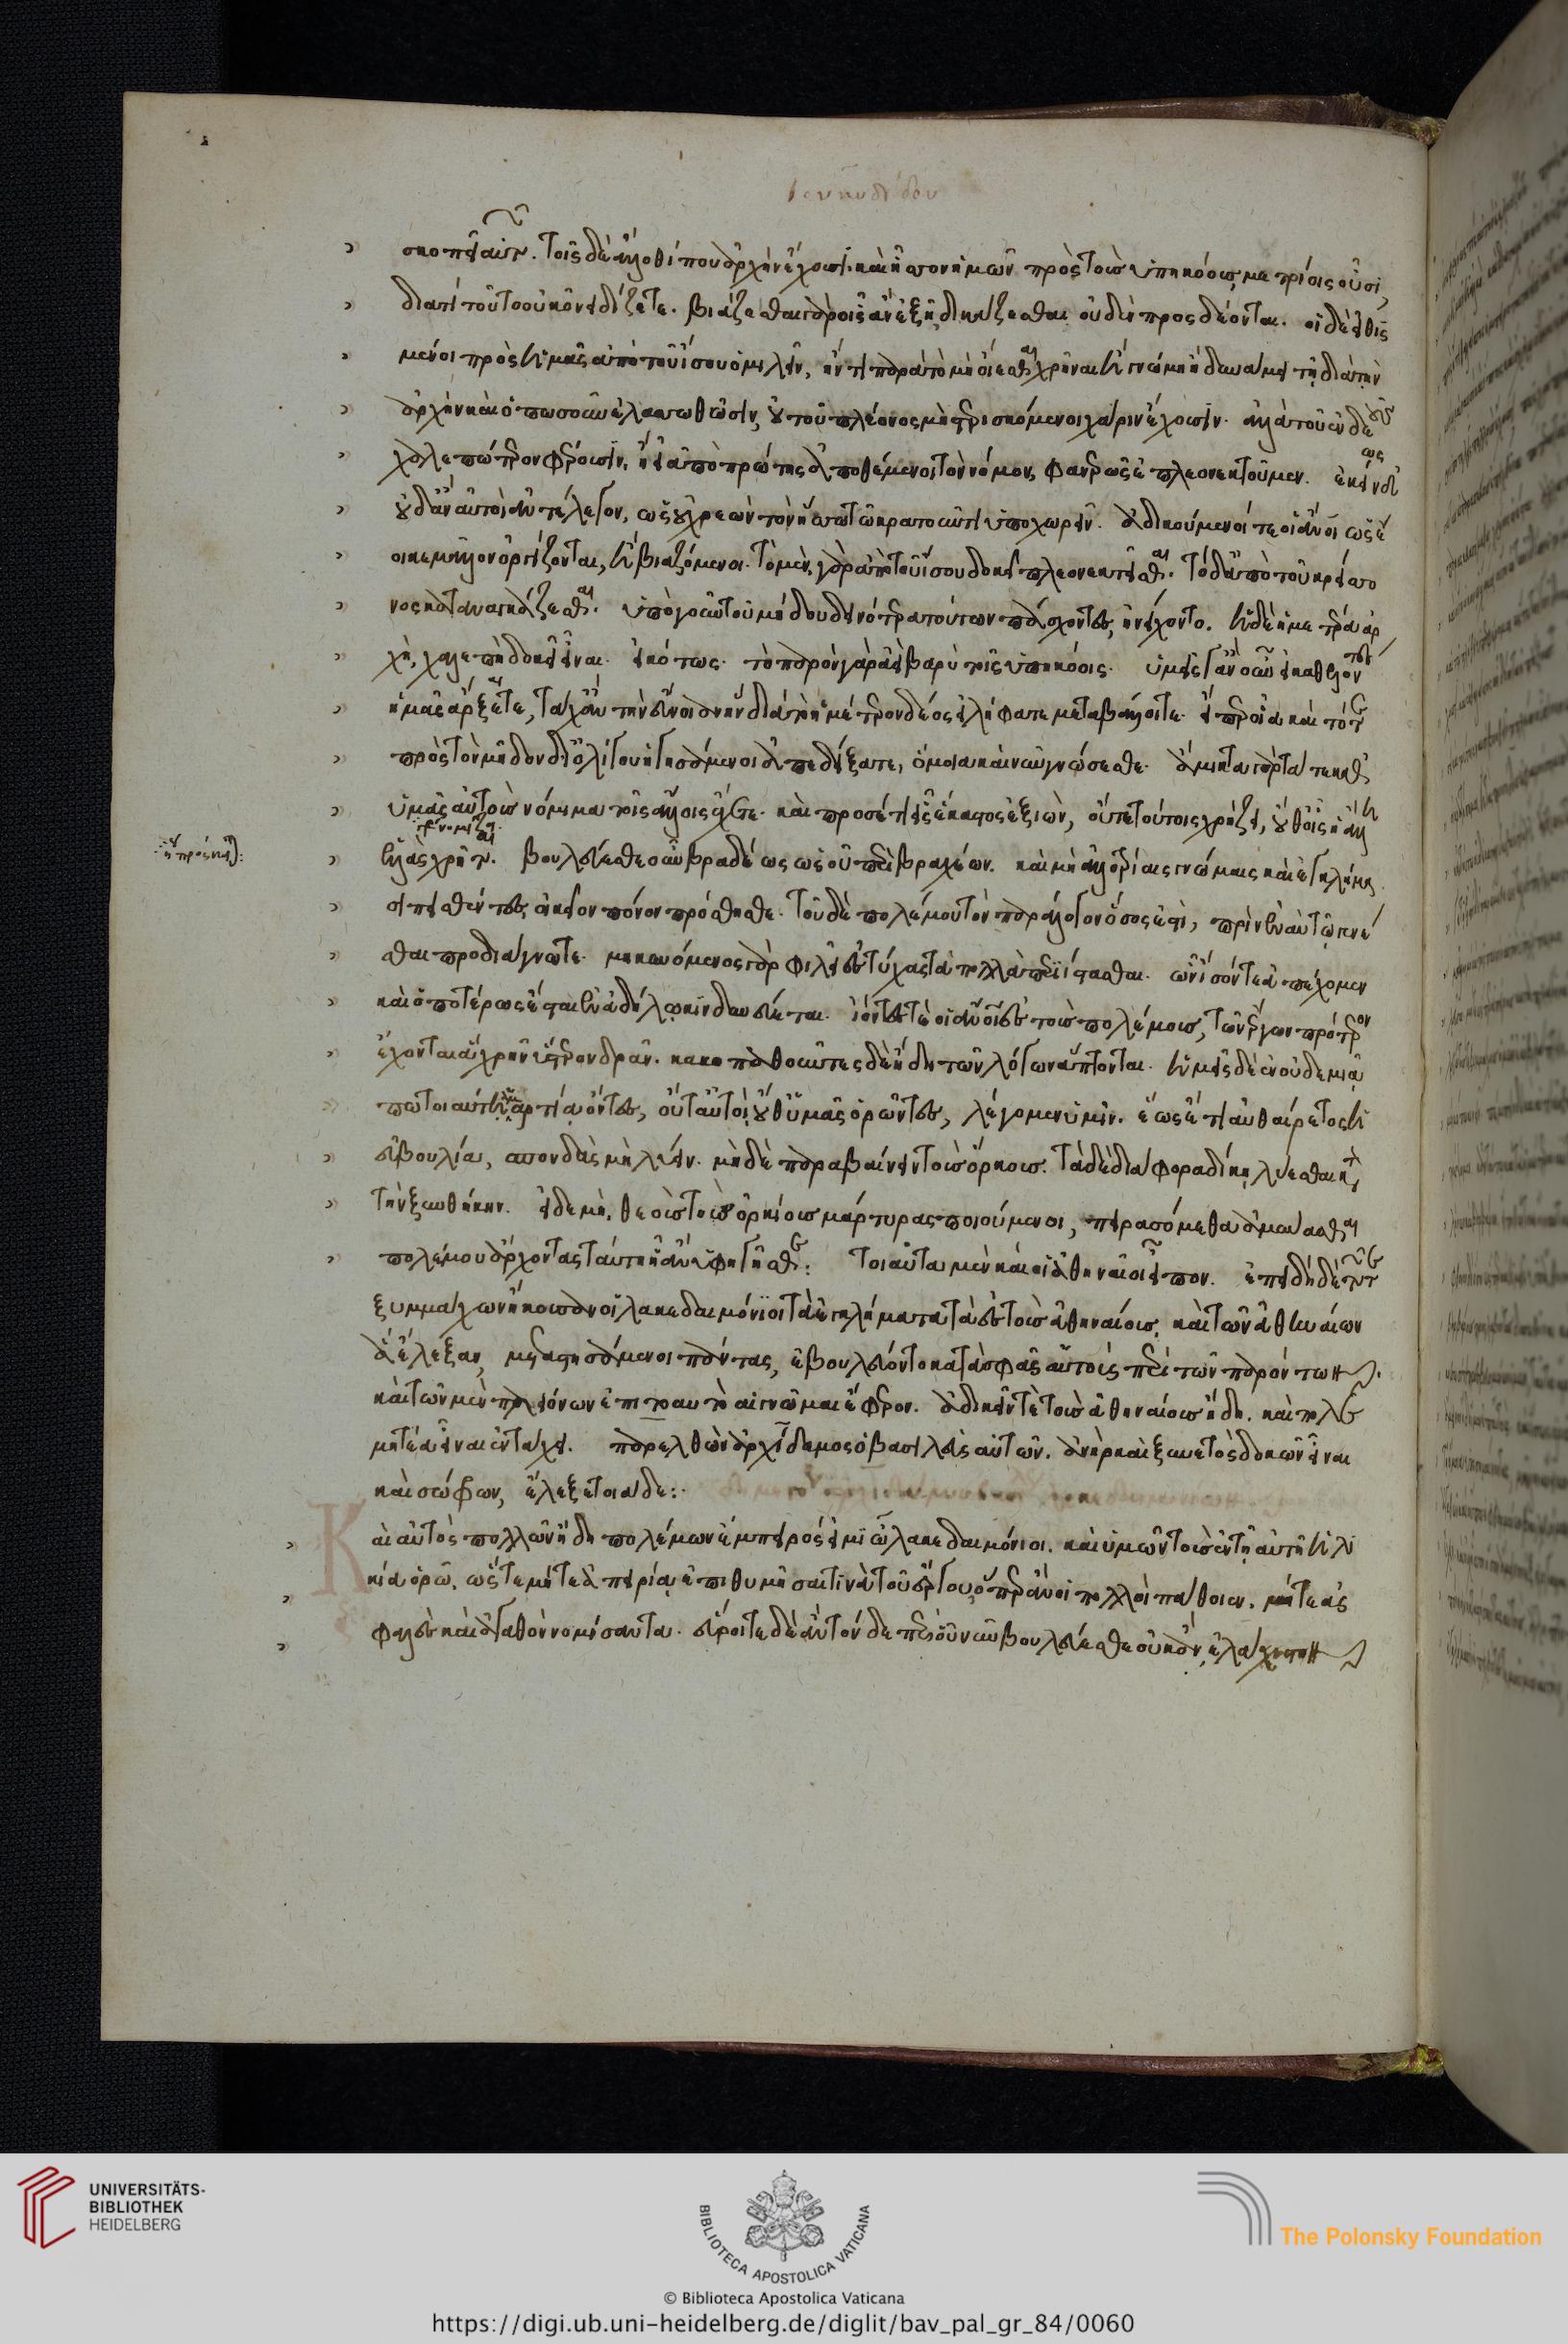 Θουκυδίδου
σκοπεῖ αὐτῶν. τοῖς δὲ ἄλλοθί που ἀρχὴν ἔχουσι. καὶ ἧσσον ἡμῶν πρὸς τοὺς ὑπηκόους μετρίοις οὖσι,
διατί τοῦτο οὐκ ὀνειδίζεται. βιάζεσθαι γὰρ οἷς ἂν ἐξῇ, δικάζεσθαι οὐδὲν προσδέονται. οἱ δὲ εἰθισ
μένοι πρὸς ἡμᾶς ἀπὸ τοῦ ἴσου ὁμιλεῖν, ἤν τι παρὰ τὸ μὴ οἴεσθαι χρῆναι ἢ γνώμῃ ἢ δυνάμει τῇ διὰ τὴν
ἀρχὴν καὶ ὁπωσοῦν ἐλασσωθῶσιν, οὐ τοῦ πλέονος μὴ στερισκόμενοι χάριν ἔχουσιν. ἀλλὰ τοῦ ἐνδεοῦς
χαλεπώτερον φέρουσιν, ἢ εἰ ἀπὸ πρώτης ἀποθέμενοι τὸν νόμον, φανερῶς ἐπλεονεκτοῦμεν. ἐκείνως δὲ
οὐδ' ἂν αὐτοὶ ἀντέλεγον, ὡς οὐ χρεὼν τὸν ἥσσω τῷ κρατοῦντι ὑποχωρεῖν. ἀδικούμενοί τε οἱ ἄνθρωποι ὡς ἔ
οικε μᾶλλον ὀργίζονται, ἢ βιαζόμενοι. τὸ μὲν γὰρ ἀπὸ τοῦ ἴσου δοκεῖ πλεονεκτεῖσθαι. τὸ δ' ἀπὸ τοῦ κρείσσο
νος καταναγκάζεσθαι. ὑπὸ γοῦν τοῦ μήδου δεινότερα τούτων πάσχοντες, ἠνείχοντο. ἡ δὲ ἡμετέρα ἀρ
χὴ, χαλεπὴ δοκεῖ εἶναι. εἰκότως. τὸ παρὸν γὰρ ἀεὶ βαρὺ τοῖς ὑπηκόοις. ὑμεῖς γ' ἂν οὖν εἰ καθελόντες
ἡμᾶς ἄρξαιτε, τάχ' ἂν τὴν εὔνοιαν ἣν διὰ τὸ ἡμέτερον δέος εἰλήφατε μεταβάλλοιτε. εἴπερ οἷα καὶ τότε
πρὸς τὸν μῆδον δι' ὀλίγου ἡγησάμενοι ἀπεδείξατε, ὅμοια καὶ νῦν γνώσεσθε. ἄμικτα γὰρ τά τε καθ'
ὑμᾶς αὐτοὺς νόμιμα τοῖς ἄλλοις ἔχετε. καὶ προσέτι εἷς ἕκαστος ἐξιὼν, οὔτε τούτοις χρῆται, οὔθ' οἷς ἡ ἄλλη
ἑλλὰς νομίζει. βουλεύεσθε οὖν βραδέως ὡς οὐ περὶ βραχέων. καὶ μὴ ἀλλοτρίαις γνώμαις καὶ ἐγκλήμα
σι πεισθέντες οἰκεῖον πόνον πρόσθησθε. τοῦ δὲ πολέμου τὸν παράλογον ὅσος ἐστὶ, πρὶν ἐν αὐτῷ γενέ
σθαι προδιάγνωτε. μηκυνόμενος γὰρ φιλεῖ ἐς τύχας τὰ πολλὰ περιίστασθαι. ὧν ἴσόν τε ἀπέχομεν
καὶ ὁποτέρως ἔσται ἐν ἀδήλῳ κινδυνεύεται. ἰόντες τὲ οἱ ἄνθρωποι ἐς τοὺς πολέμους, τῶν ἔργων πρότερον
ἔχονται ἃ χρῆν ὕστερον δρᾶν. κακοπαθοῦντες δὲ ἤδη τῶν λόγων ἅπτονται. ἡμεῖς δὲ ἐν οὐδεμιᾷ
πω τοιαύτῃ ἁμαρτίᾳ ὄντες, οὔτ' αὐτοὶ, οὔθ' ὑμᾶς ὁρῶντες, λέγομεν ὑμῖν. ἕως ἔτι αὐθαίρετος ἡ
εὐβουλία, σπονδὰς μὴ λύειν. μὴ δὲ παραβαίνειν τοὺς ὅρκους. τὰ δὲ διάφορα δίκῃ λύεσθαι κατὰ
τὴν ξυνθήκην. εἰ δὲ μὴ, θεοὺς τοὺς ὁρκίους μάρτυρας ποιούμενοι, πειρασόμεθα ἀμύνασθαι
πολέμου ἄρχοντας ταύτῃ ᾗ ἂν ὑφηγῆσθε: τοιαῦτα μὲν καὶ οἱ ἀθηναῖοι εἶπον. ἐπειδὴ δὲ τῶν τε
ξυμμάχων ἤκουσαν οἱ λακεδαιμόνιοι τὰ ἐγκλήματα τὰ ἐς τοὺς ἀθηναίους. καὶ τῶν ἀθηναίων
ἃ ἔλεξαν, μεταστησάμενοι πάντας, ἐβουλεύοντο κατὰ σφᾶς αὐτοὺς περὶ τῶν παρόντων.
καὶ τῶν μὲν πλειόνων ἐπὶ τὸ αὐτὸ αἱ γνῶμαι ἔφερον. ἀδικεῖν τὲ τοὺς ἀθηναίους ἤδη. καὶ πολε
μητέα εἶναι ἐν τάχει. παρελθὼν ἀρχίδαμος ὁ βασιλεὺς αὐτῶν. ἀνὴρ καὶ ξυνετὸς δοκῶν εἶναι
καὶ σώφρων, ἔλεξε τοιάδε:
Καὶ αὐτὸς πολλῶν ἤδη πολέμων ἔμπειρός εἰμι ὦ λακεδαιμόνιοι. καὶ ὑμῶν τοὺς ἐν τῇ αὐτῇ ἡλι
κίᾳ ὁρῶ. ὥστε μήτε ἀπειρίᾳ ἐπιθυμῆσαί τινα τοῦ ἔργου, ὅπερ ἂν οἱ πολλοὶ πάθοιεν. μήτε ἀσ
φαλὲς καὶ ἀγαθὸν νομίσαντα. εὕροιτε δὲ ἂν τόνδε περὶ οὗ νῦν βουλεύεσθε οὐκ ἂν ἐλάχιστον
UNIVERSITÄTS-
BIBLIOTHEK
HEIDELBERG
BIBLIOTECA APOSTOLICA VATICANA
The Polonsky Foundation
© Biblioteca Apostolica Vaticana
https://digi.ub.uni-heidelberg.de/diglit/bav_pal_gr_84/0060